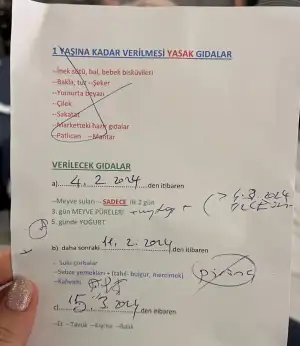 1 YAŞINA KADAR VERİLMESİ YASAK GIDALAR
--İnek sütü, bal, bebek bisküvileri
--Bakla, tuz --Şeker
--Yumurta beyazı
--Çilek
--Sakatat
--Marketteki hazır gıdalar
--Patlıcan --Mantar
VERİLECEK GIDALAR
a)......4..2..2024.....den itibaren
--Meyve suları -- SADECE ilk 2 gün
3. gün MEYVE PÜRELERİ
5. günde YOĞURT
b) daha sonraki 11.2.2024 den itibaren
- Sulu çorbalar
-Sebze yemekleri + (tahıl- bulgur, mercimek) pirinç
--Kahvaltı
c) 15.3.2024 den itibaren
--Et -- Tavuk -- Kıyma --Balık